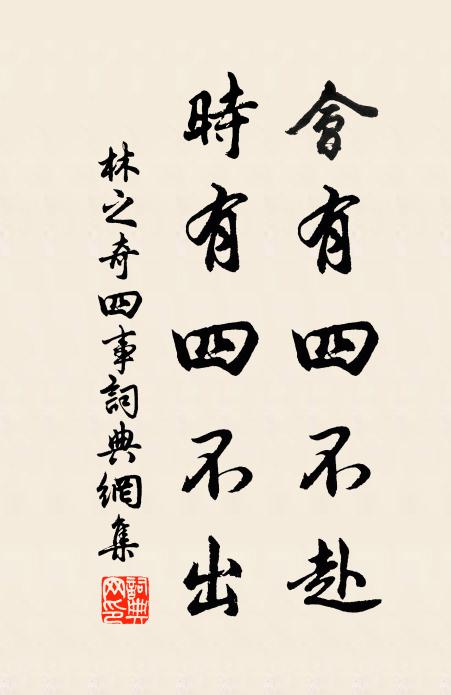 會有四不赴
時有四不出
林之奇四事詞典網集
詞典網印